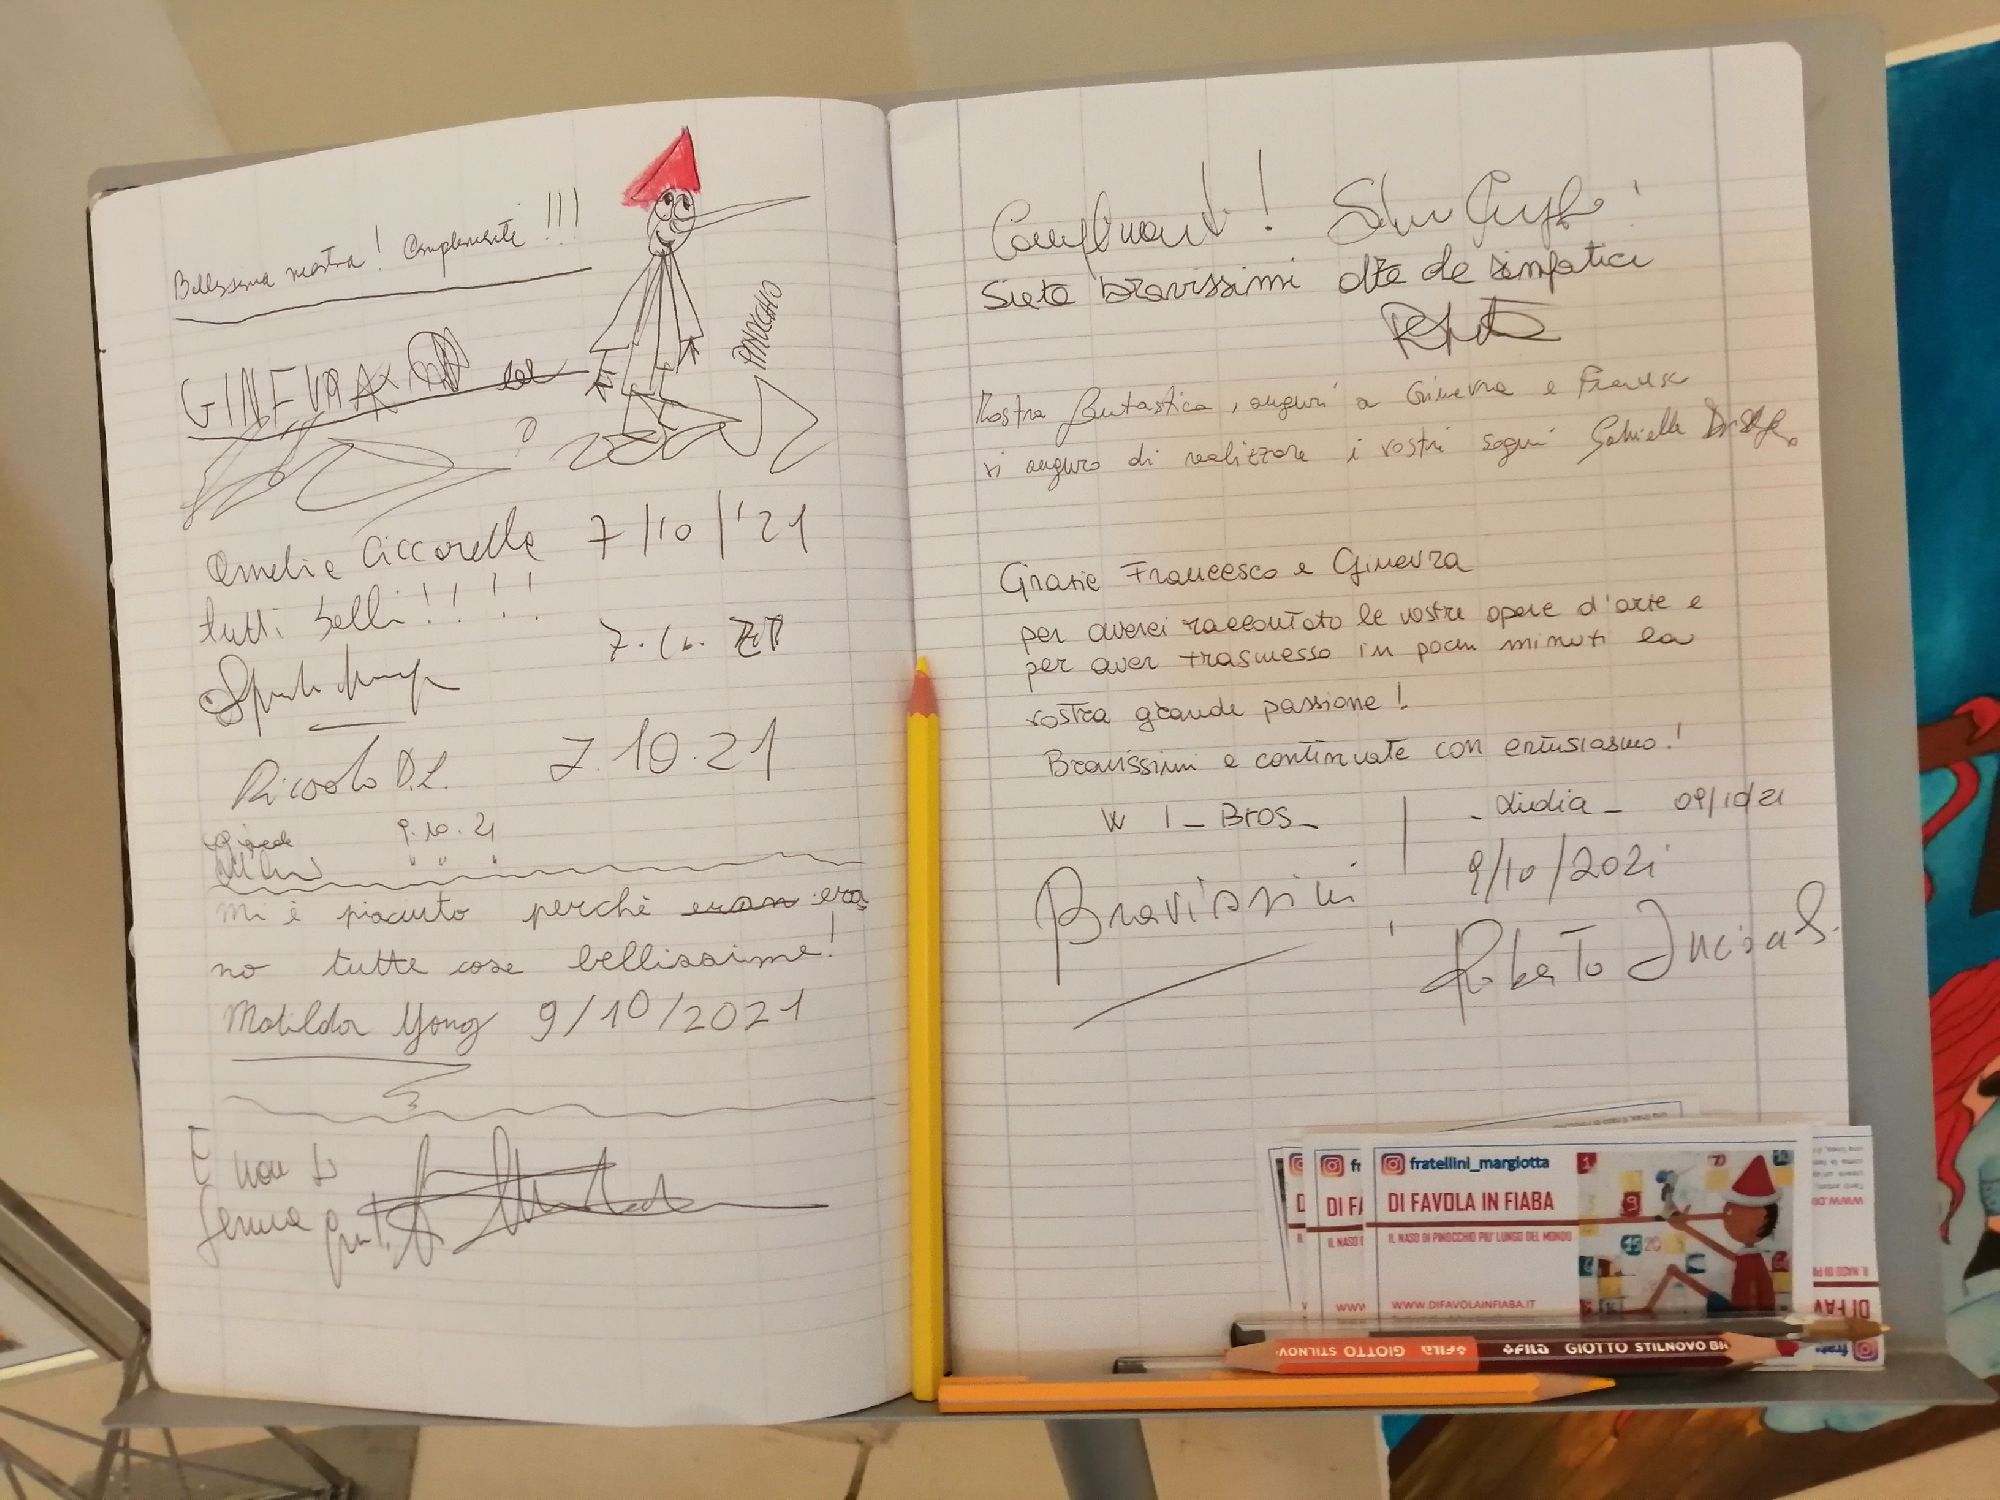 Bellissima mostra! Complimenti!!!
PINOCCHIO
GINEVRA
Amelie Ciccarelle 7/10/'21
tutti belli!!!!!
7.10.
Riccardo D.L. 7.10.21
9.10.21
" " "
mi è piaciuto perchè eran era
no tutte cose bellissime!
Matilda Yong 9/10/2021
Complimenti!
Siete bravissimi oltre che simpatici
Mostra fantastica, auguri a Ginevra e Francesco
vi auguro di realizzare i vostri sogni Gabriella
Grazie Francesco e Ginevra
per averci raccontato le vostre opere d'arte e
per aver trasmesso in pochi minuti la
vostra grande passione!
Bravissimi e continuate con entusiasmo!
W I_Bros_ - Lidia - 09/10/21
9/10/2021
Bravissimi!
Roberto
fratellini_margiotta
DI FAVOLA IN FIABA
IL NASO DI PINOCCHIO PIU' LUNGO DEL MONDO
WWW.DIFAVOLAINFIABA.IT
FILA GIOTTO STILNOVO
FILA GIOTTO STILNOVO BI